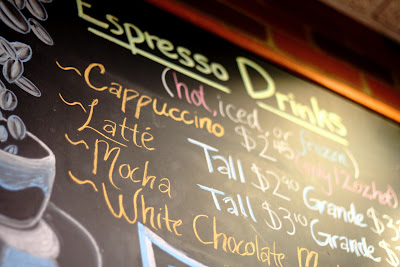 Espresso Drinks
(hot, iced, or frozen)
~Cappuccino $2.45 (only 12oz hot)
~Latté Tall $2.90 Grande $3
~Mocha Tall $3.10 Grande $3
~White Chocolate M